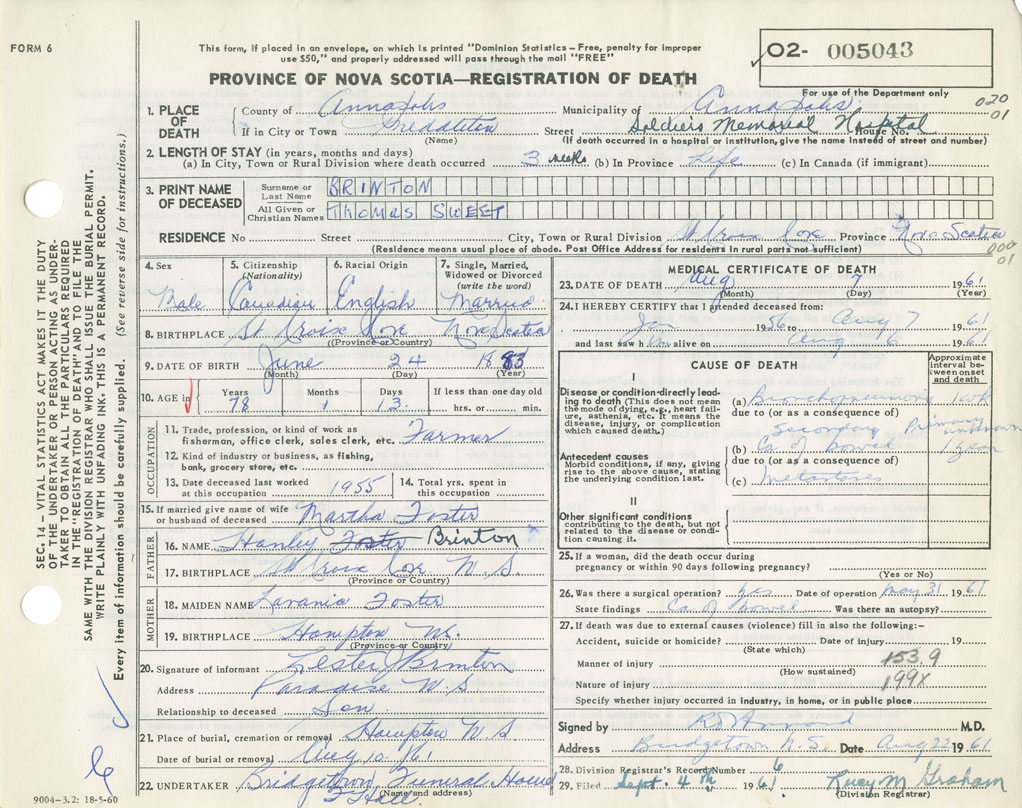 FORM 6
This form, if placed in an envelope, on which is printed "Dominion Statistics – Free, penalty for improper
use $50," and properly addressed will pass through the mail "FREE"
PROVINCE OF NOVA SCOTIA—REGISTRATION OF DEATH
02- 005043
For use of the Department only
020
01
1. PLACE OF DEATH
County of Annapolis Municipality of Annapolis
If in City or Town Middleton Street Soldiers Memorial Hospital House No.
(Name) (If death occurred in a hospital or institution, give the name instead of street and number)
2. LENGTH OF STAY (in years, months and days)
(a) In City, Town or Rural Division where death occurred 3 weeks (b) In Province Life (c) In Canada (if immigrant)
3. PRINT NAME OF DECEASED
Surname or Last Name BRINTON
All Given or Christian Names THOMAS SWEET
RESIDENCE No Street City, Town or Rural Division St Croix Cove Province Nova Scotia
(Residence means usual place of abode. Post Office Address for residents in rural parts not sufficient)
000
01
4. Sex Male
5. Citizenship (Nationality) Canadian
6. Racial Origin English
7. Single, Married, Widowed or Divorced (write the word) Married
8. BIRTHPLACE St Croix Cove Nova Scotia
(Province or Country)
9. DATE OF BIRTH June 24 1883
(Month) (Day) (Year)
10. AGE in Years 78 Months 1 Days 13 If less than one day old hrs. or min.
OCCUPATION
11. Trade, profession, or kind of work as
fisherman, office clerk, sales clerk, etc. Farmer
12. Kind of industry or business, as fishing,
bank, grocery store, etc.
13. Date deceased last worked
at this occupation 1955
14. Total yrs. spent in
this occupation
15. If married give name of wife
or husband of deceased Martha Foster
FATHER
16. NAME Hanley Foster Brinton
17. BIRTHPLACE St Croix Cove N S.
(Province or Country)
MOTHER
18. MAIDEN NAME Lavania Foster
19. BIRTHPLACE Hampton N.S.
(Province or Country)
20. Signature of informant Lester J Brinton
Address Paradise N.S.
Relationship to deceased Son
21. Place of burial, cremation or removal Hampton N S
Date of burial or removal Aug 10 /61
22. UNDERTAKER Bridgetown Funeral Home
(Name and address)
F Hall
9004-3.2: 18-5-60
MEDICAL CERTIFICATE OF DEATH
23. DATE OF DEATH Aug 7 1961
(Month) (Day) (Year)
24. I HEREBY CERTIFY that I attended deceased from:
Jan 1956 to Aug 7 1961
and last saw him alive on Aug 6 1961
CAUSE OF DEATH
Approximate interval between onset and death
I
Disease or condition directly leading to death (This does not mean the mode of dying, e.g., heart failure, asthenia, etc. It means the disease, injury, or complication which caused death.)
(a) Bronchopneumonia 1 wk
due to (or as a consequence of)
Secondary Primary unknown
(b) Ca of bowel 1 year
Antecedent causes
Morbid conditions, if any, giving rise to the above cause, stating the underlying condition last.
due to (or as a consequence of)
(c) Metastases
II
Other significant conditions
contributing to the death, but not related to the disease or condition causing it.
25. If a woman, did the death occur during
pregnancy or within 90 days following pregnancy?
(Yes or No)
26. Was there a surgical operation? yes Date of operation May 31 1961
State findings Ca of bowel Was there an autopsy?
27. If death was due to external causes (violence) fill in also the following:–
Accident, suicide or homicide? Date of injury 19
(State which)
Manner of injury 153.9
(How sustained)
Nature of injury 199X
Specify whether injury occurred in industry, in home, or in public place
Signed by M.D.
Address Bridgetown N.S. Date Aug 22 1961
28. Division Registrar's Record Number 6
29. Filed Sept. 4th 1961 Lucy M Graham
(Division Registrar)
SEC. 14 – VITAL STATISTICS ACT MAKES IT THE DUTY
OF THE UNDERTAKER OR PERSON ACTING AS UNDER-
TAKER TO OBTAIN ALL THE PARTICULARS REQUIRED
IN THE "REGISTRATION OF DEATH" AND TO FILE THE
SAME WITH THE DIVISION REGISTRAR WHO SHALL ISSUE THE BURIAL PERMIT.
WRITE PLAINLY WITH UNFADING INK. THIS IS A PERMANENT RECORD.
Every item of information should be carefully supplied. (See reverse side for instructions.)